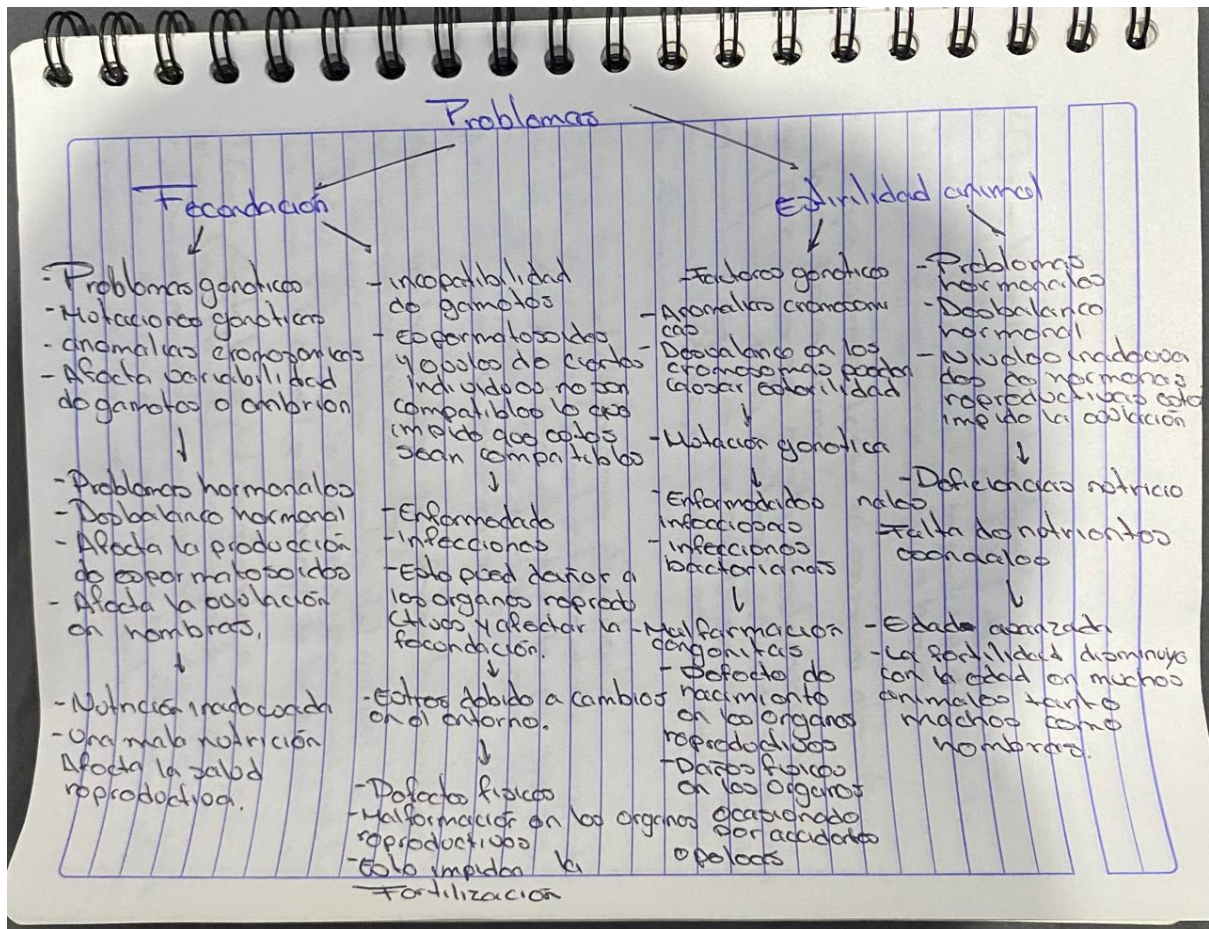 Problemas
Fecondación
- Problemas genéticos
- Mutaciones genéticas
- anomalias cromosomicas
- Afecta bariabilidad
de gametos o embrion
- Problemas hormonales
- Desbalance hormonal
- Afecta la producción
de espermatosoides
- Afecta la obolación
en hembras.
- Nutrición inadecuada
- Una mala nutrición
Afecta la salud
reproductiva.
- incopatibilidad
de gametos
- Espermatosoides
y obolos de ciertos
individuos no son
compatibles lo que
impide que estos
sean compatibles
- Enfermedades
- infecciones
- Esto pued dañar a
los organos reprodu
ctivos y afectar la
fecondación.
- Estres debido a cambios
en el entorno.
- Defectos fisicos
- Malformación en los organos
reproductivos
- Esto impiden la
Fertilización
Estirilidad animal
- Factores genéticos
- Anomalias cromosomi
cas
- Desbalance en los
cromosomas pueden
causar esterilidad
- Mutación genetica
- Enfermedades
infecciosas
- infecciones
bacterianas
- Malformación
congenitas
- Defecto de
nacimiento
en los organos
reproductivos
- Daños fisicos
en los organos
ocacionado
por accidentes
o peleas
- Problemas
hormonales
- Desbalance
hormonal
- Niveles inadecua
dos de hormonas
reproductivas esto
impide la obolación
- Deficiencias nutricio
nales
- Falta de nutrientes
esenciales
- Edade abanzada
- La fertilidad disminuye
con la edad en muchos
animales tanto
machos como
hembras.